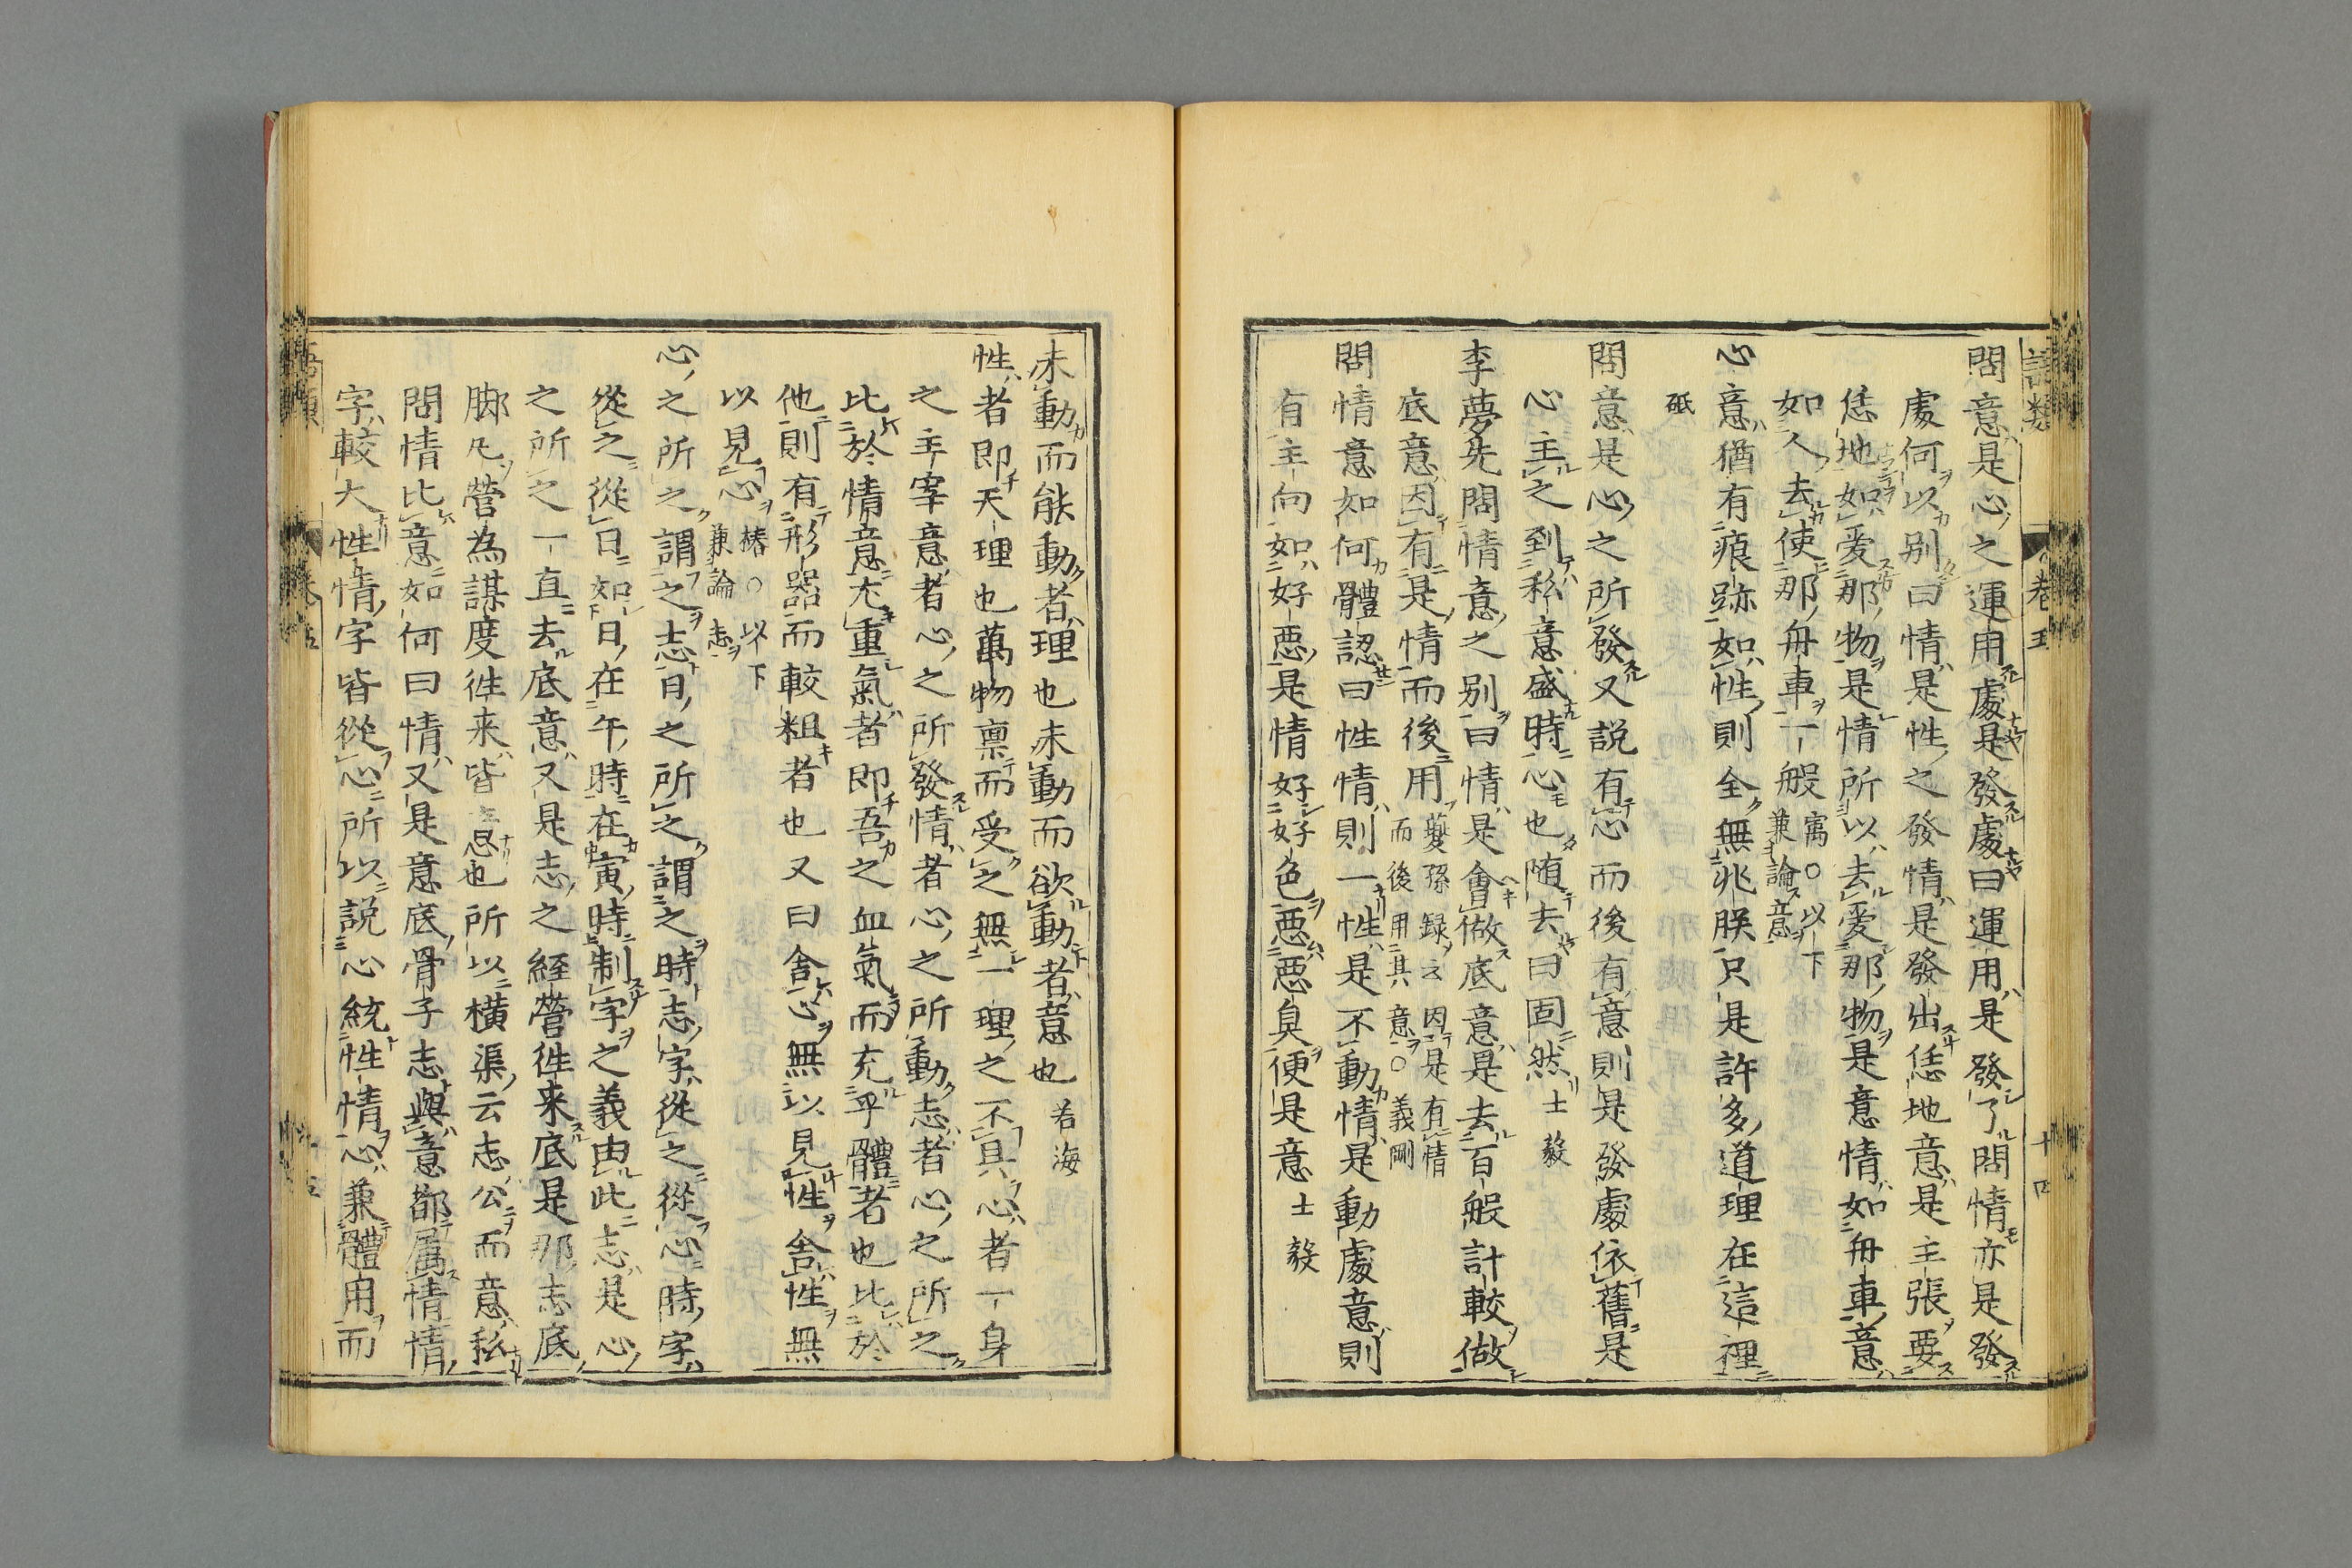 語類 卷五 十四
問意是心之運用處是發處曰運用是發了問情亦是發
處何以別曰情是性之發情是發出恁地意是主張要
恁地如愛那物是情所以去愛那物是意情如舟車意
如人去使那舟車一般㝢○以下兼論意
心意猶有痕跡如性則全無兆朕只是許多道理在這裡
砥
問意是心之所發又說有心而後有意則是發處依舊是
心主之到私意盛時心也随去曰固然士毅
李夢先問情意之别曰情是會做底意是去百般計較做
底意因有是情而後用夔孫録云因是有情而後用其意○義剛
問情意如何體認曰性情則一性是不動情是動處意則
有主向如好惡是情好好色惡惡臭便是意士毅
未動而能動者理也未動而欲動者意也若海
性者即天理也萬物稟而受之無一理之不具心者一身
之主宰意者心之所發情者心之所動志者心之所之
比於情意尤重氣者即吾之血氣而充乎體者也比於
他則有形器而較粗者也又曰舍心無以見性舍性無
以見心椿○以下兼論志
心之所之謂之志日之所之謂之時志字從之從心時字
從之從日如日在午時在寅時制字之義由此志是心
之所之一直去底意又是志之經營徃来底是那志底
脚凡營為謀度徃来皆意也所以横渠云志公而意私
問情比意如何曰情又是意底骨子志與意都屬情情
字較大性情字皆從心所以說心統性情心兼體用而
語類 卷五